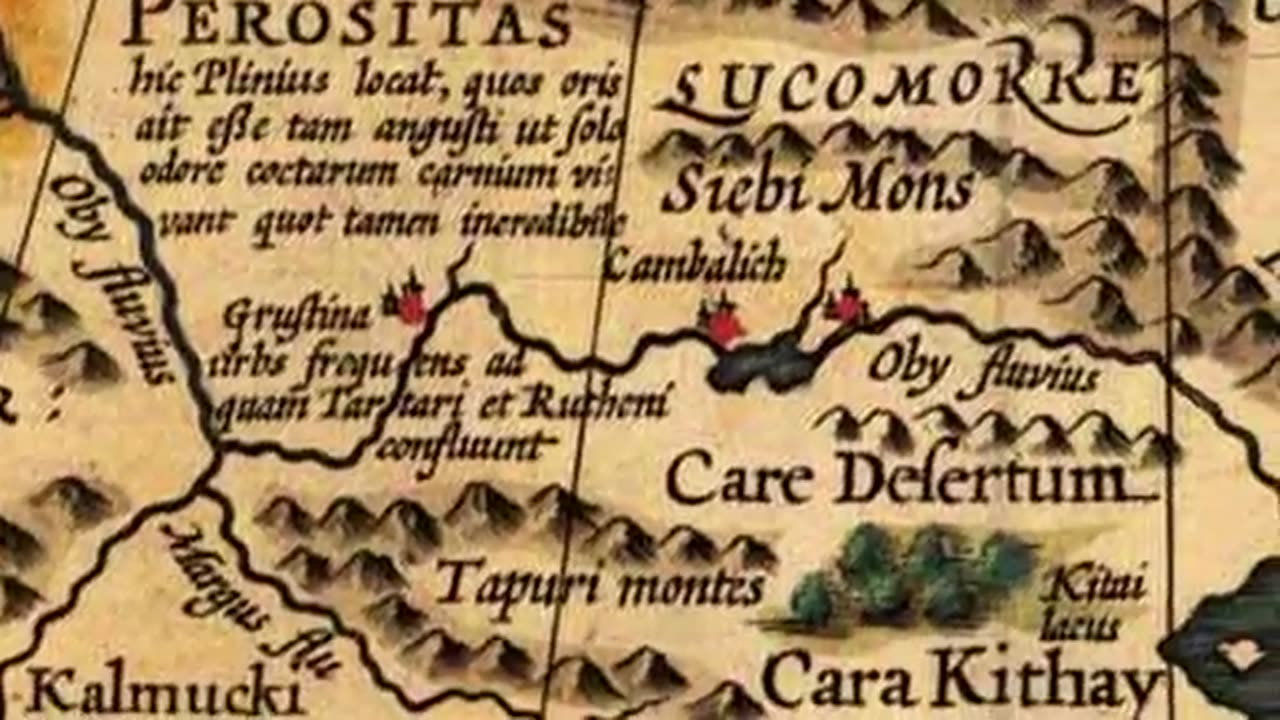 PEROSITAS
hic Plinius locat, quos oris
ait eſse tam anguſti ut ſolo
odore coctarum carnium vi:
vant quot tamen incredibile
SUCOMORRE
Siebi Mons
Cambalich
Oby fluvius
Gruſtina
urbs frequens ad
quam Tartari et Rutheni
confluunt
Oby fluvius
Care Deſertum
R :
Margus flu
Tapuri montes
Kitai
lacus
Cara Kithay
Kalmucki